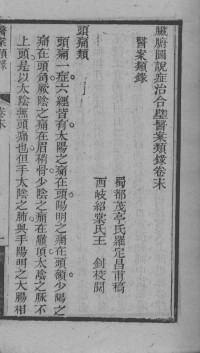 臟腑圖說症治合璧醫案類錄卷末
醫案類錄
蜀都茂亭氏羅定昌甫稿
西岐紹棠氏王 劍校閱
頭痛類
頭痛一症六經皆有太陽之痛在頭陽明之痛在頭額少陽之
痛在頭角厥陰之痛在眉稍骨少陰之痛在巔頂太陰之脈不
上頭是以太陰無頭痛也但手太陰之肺與手陽明之大腸相
醫案類錄
卷末